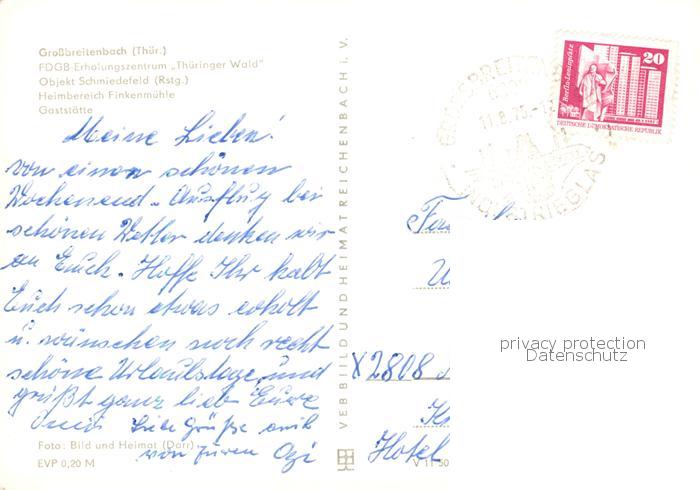 Großbreitenbach (Thür.)
FDGB-Erholungszentrum „Thüringer Wald"
Objekt Schmiedefeld (Rstg.)
Heimbereich Finkenmühle
Gaststätte
Meine Lieben!
von einen schönen
Wochenend-Ausflug bei
schönen Wetter denken wir
an Euch. Hoffe Ihr habt
Euch schon etwas erholt
u. wünschen noch recht
schöne Urlaubstage und
grüßt ganz lieb Eure
Omi Liebe Grüße auch
von
Foto: Bild und Heimat (Darr)
EVP 0,20 M
VEB BILD UND HEIMAT REICHENBACH i. V.
V 11 50
Berlin-Leninplatz
20
DEUTSCHE DEMOKRATISCHE REPUBLIK
11.8.75
Fa
X2808
Hotel
privacy protection
Datenschutz